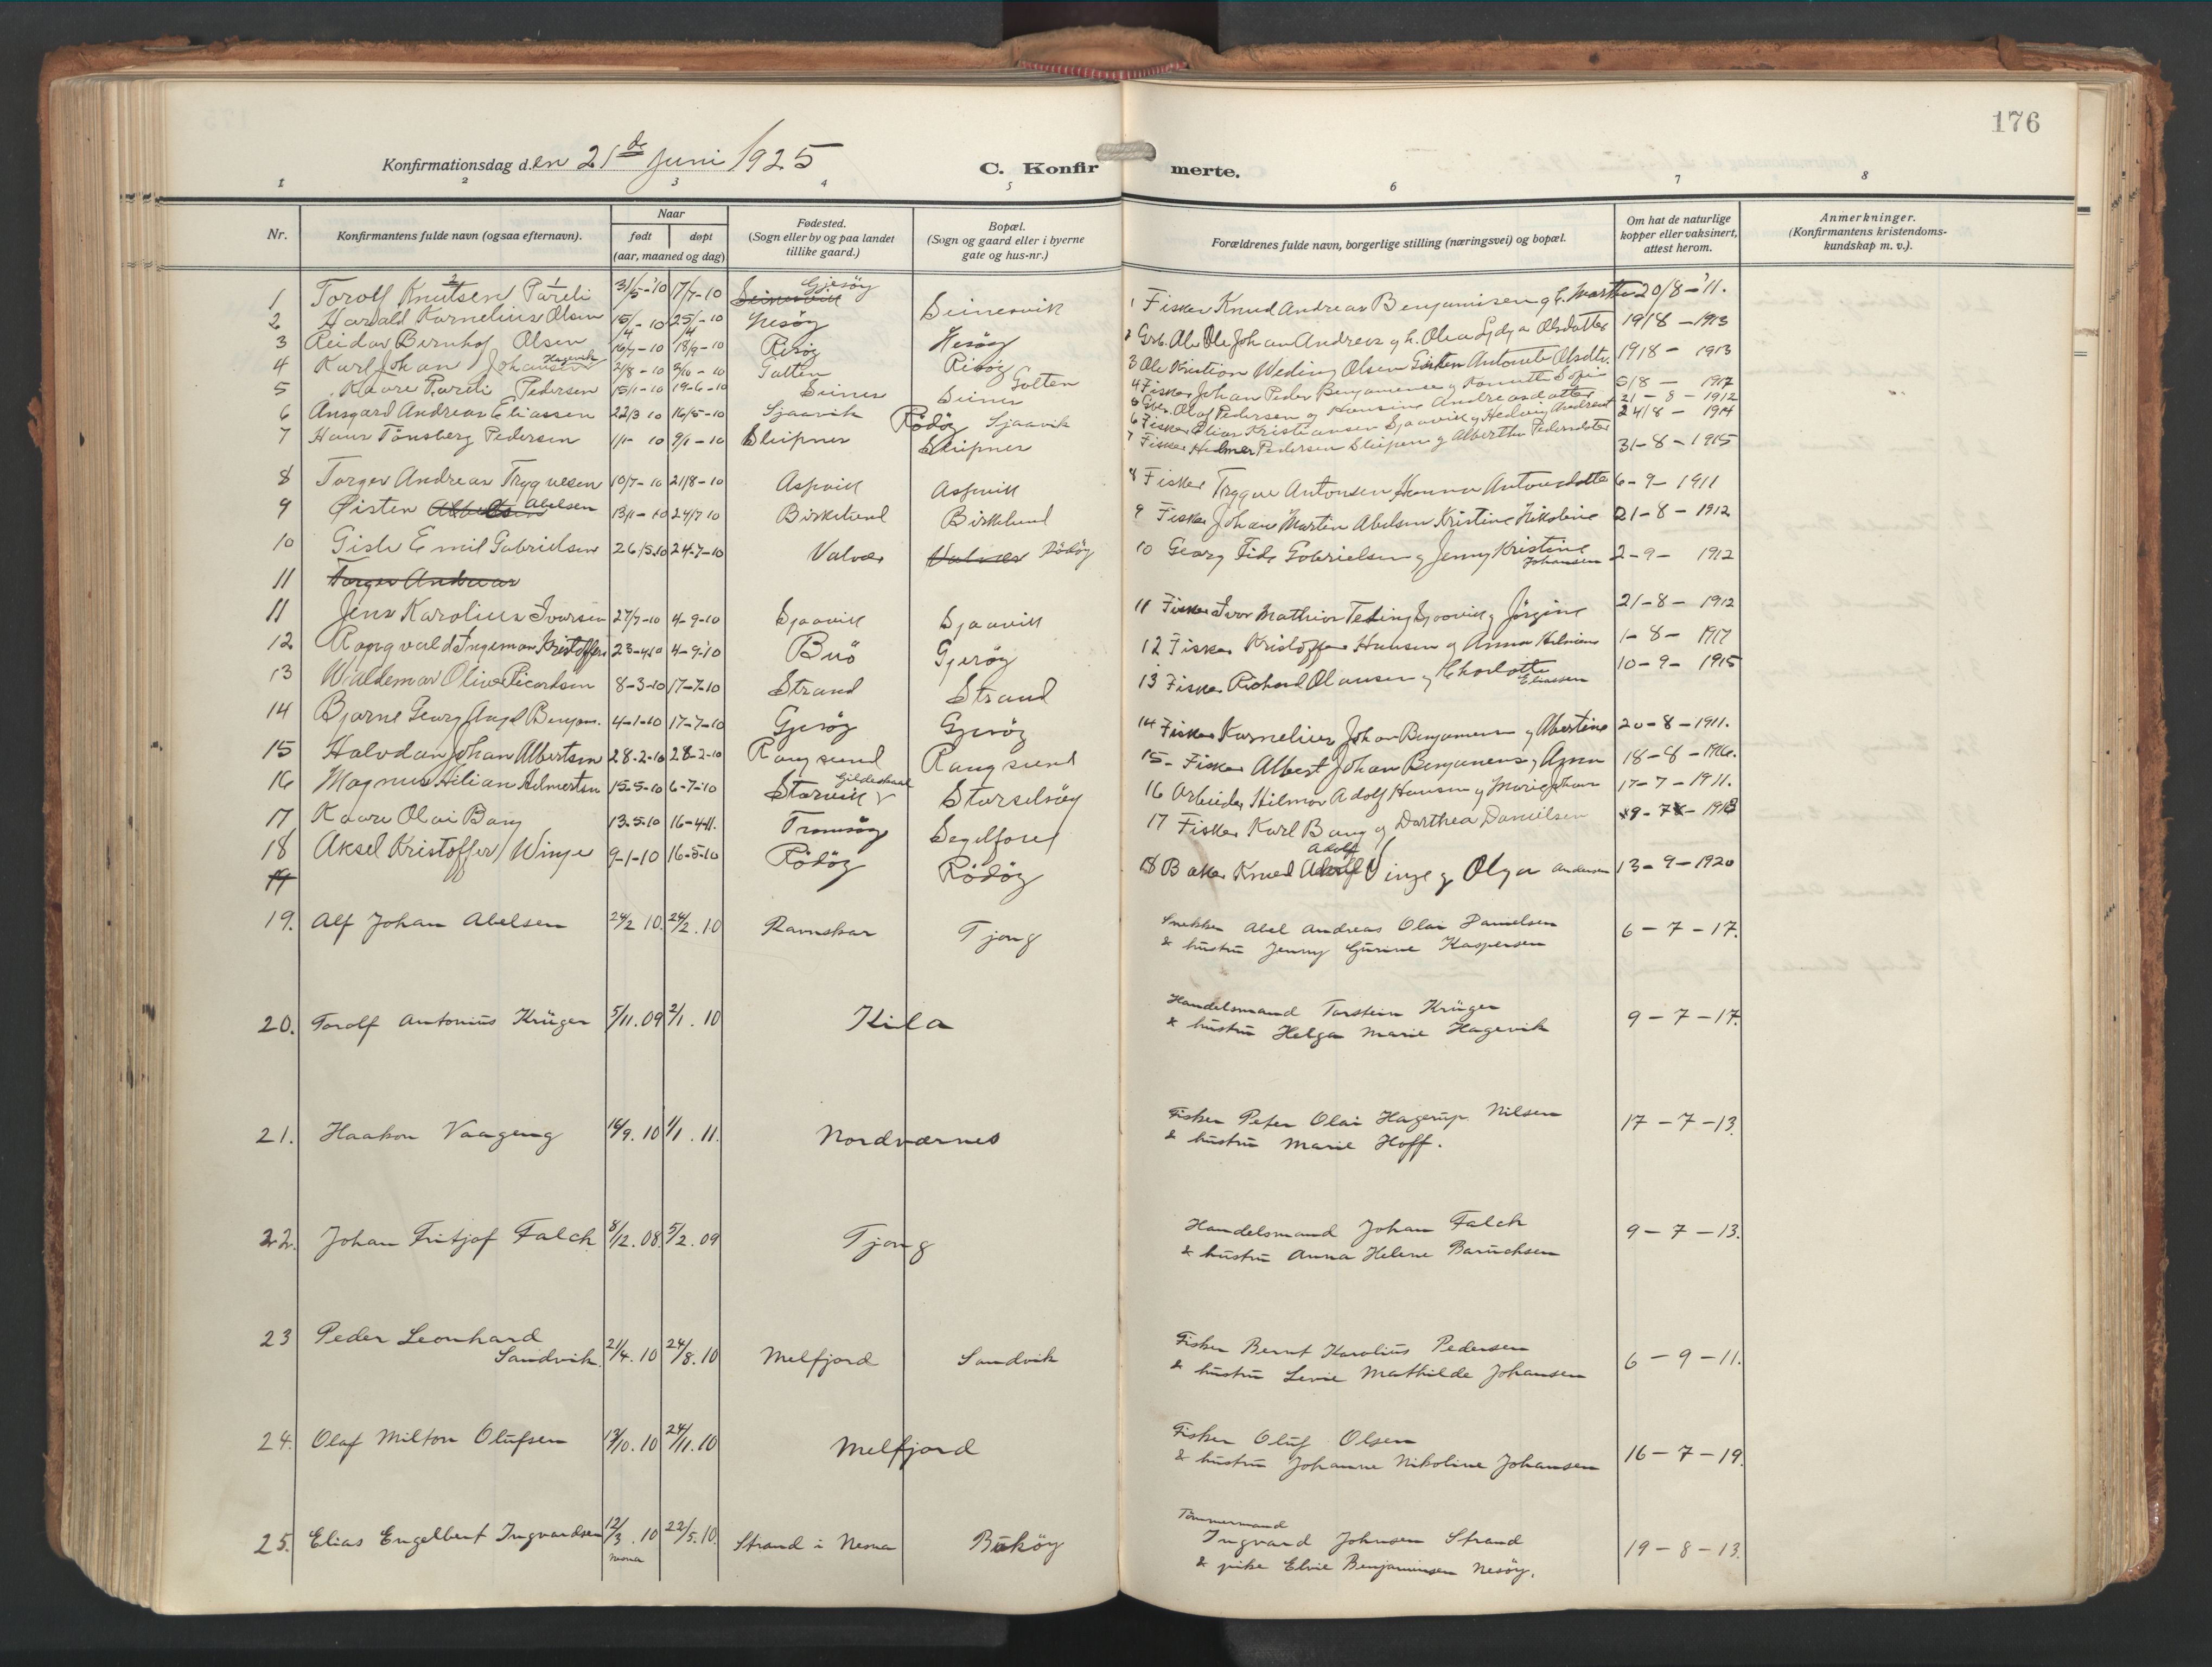 176
Konfirmationsdag d.en 21de Juni 1925
C. Konfirmerte.
1 2 3 4 5 6 7 8
Nr.
Konfirmantens fulde navn (ogsaa efternavn).
Naar
født døpt
(aar, maaned og dag)
Fødested.
(Sogn eller by og paa landet
tillike gaard.)
Bopæl.
(Sogn og gaard eller i byerne
gate og hus-nr.)
Forældrenes fulde navn, borgerlige stilling (næringsvei) og bopæl.
Om hat de naturlige
kopper eller vaksinert,
attest herom.
Anmerkninger.
(Konfirmantens kristendoms-
kundskap m. v.).
1 Torolf Knutsen Pareli 31/5-10 17/7-10 Gjesöy Seinesvik 1 Fisker Knud Andreas Benjaminsen g. h. Martha 20/8-'11.
2 Harald Kornelius Olsen 15/4-10 25/4-10 Nesöy Nesöy 2 Grb. Ole Johan Andreas g h. Olea Lydya Olsdatter 19/8-1913
3 Reidar Bernhof Olsen 16/7-10 18/9-10 Risöy Risöy 3 Ole Kristian Weding Olsen Antonete Olsdtr. 19/8- 1913
4 Karl Johan Johansen Hagevik 2/8-10 9/10-10 Galten Galten 4 Fisker Johan Peder Benjaminsen g 5/8 - 1917
5 Kaare Pareli Pedersen 15/1-10 19-6-10 Seines Seines 5 Olaf Pedersen og Hansine Andreasdatter 21-8-1912
6 Ansgard Andreas Eliassen 22/3 10 16/5-10 Sjaavik Rödöy Sjaavik 6 Fisker Elias Kristiansen Sjaavik g Hedvig 24/8- 1914
7 Hans Tönsberg Pedersen 1/1- 10 9/1-10 Sleipnes Sleipnes 7 Fisker Helmer Pedersen Sleipnes g Alberthe Pedersdatter 31-8-1915
8 Torger Andreas Trygvesen 10/7-10 21/8-10 Aspvik Aspvik 8 Fisker Trygve Antonsen Hanna Antonsdatter 6-9-1911
9 Øisten Abelsen 13/1-10 24/7 10 Birkelund Birkelund 9 Fisker Johan Martin Abelsen Kristine Nikoline 21-8-1912
10 Gisle Emil Gabrielsen 26/5-10 24-7-10 Valvær Valvær Rödöy 10 Georg Fide Gabrielsen g Jenny Kristine Johansen 2-9- 1912
11 Torger Andreas
11 Jens Karolius Ivarsen 27/7-10 4-9-10 Sjaavik Sjaavik 11 Fisker Ivar Mathias Teting Sjaavik g Jörgine 21-8-1912
12 Ragnvald Ingeman Kristoffers 23-4-10 4-9-10 Buö Gjeröy 12 Fisker Kristoffer Hansen og Anna Helmine 1-8- 1917
13 Waldemar Oliver Ricardsen 8-3-10 17-7-10 Strand Strand 13 Fisker Richard Olausen g Charlotte Eliassen 10-9-1915
14 Bjarne Georg Angel Benjam. 4-1-10 17-7-10 Gjeröy Gjeröy 14 Fisker Kornelius Johan Benjaminsen g Albertine 20-8-1911.
15 Halvdan Johan Albertsen 28-2-10 28-2-10 Rangsund Rangsund 15- Fisker Albert Johan Benjaminsen, Agnes 18-8-
16 Magnus Hilian Helmertsen 15-5-10 6-7-10 Gildeskaal Storvik Storselsöy 16 Arbeider Hilmar Adolf Hansen g 17-7-1911.
17 Kaare Olai Bang 13-5-10 16-4-11. Tromsöy Segelforel 17 Fisker Karl Bang og Dorthea Danielsen 9-7-1913
18 Aksel Kristoffer Winje 9-1-10 16-5-10 Rödöy Rödöy 18 Baker Knud Adolf Vinje g Olga Andersen 13-9-1920
19
19. Alf Johan Abelsen 24/2 10. 24/2.10 Ramskar Tjong Snekker Abel Andreas Olai Danielsen
& hustru Jenny Gurine Kaspersen 6-7-17.
20. Torolf Antonius Krüger 5/11.09 2/1.10 Kila Handelsmand Torstein Krüger
& hustru Helga Marie Hagevik 9-7-17.
21. Haakon Vaageng 14/9.10 1/1.11. Nordværnes Fisker Peter Olai Hagerup Nilsen
& hustru Marie Hoff. 17-7-13.
22. Johan Fritjof Falch 8/12.08. 5/2.09 Tjong Handelsmand Johan Falch
& hustru Anna Helene Baruchsen 9-7-13.
23 Peder Leonhard
Sandvik. 21/4.10 24/8.10 Melfjord Sandvik Fisker Bernt Karolius Pedersen
& hustru Levie Mathilde Johansen 6-9-11.
24. Olaf Milton Olufsen 13/10.10 24/11.10 Melfjord Fisker Oluf Olsen
& hustru Johanne Nikoline Johansen 16-7-19.
25. Elias Engelbert Ingvardsen 12/3.10 Nesna 22/5.10. Strand i Nesna Buköy Tömmermand
Ingvard Johnsen Strand
& pike Elvie Benjaminsen Nesöy. 19-8-13.